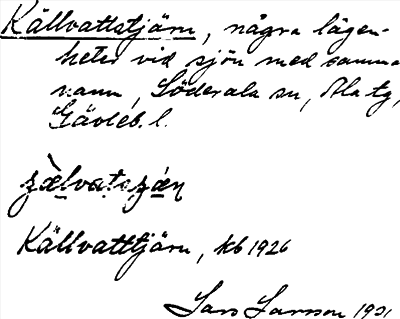 Källvattstjärn, några lägen-
heter vid sjön med samma
namn, Söderala sn, Ala tg,
Gävleb. l.
Källvatttjärn, kb 1926
Lars Larsson 1931